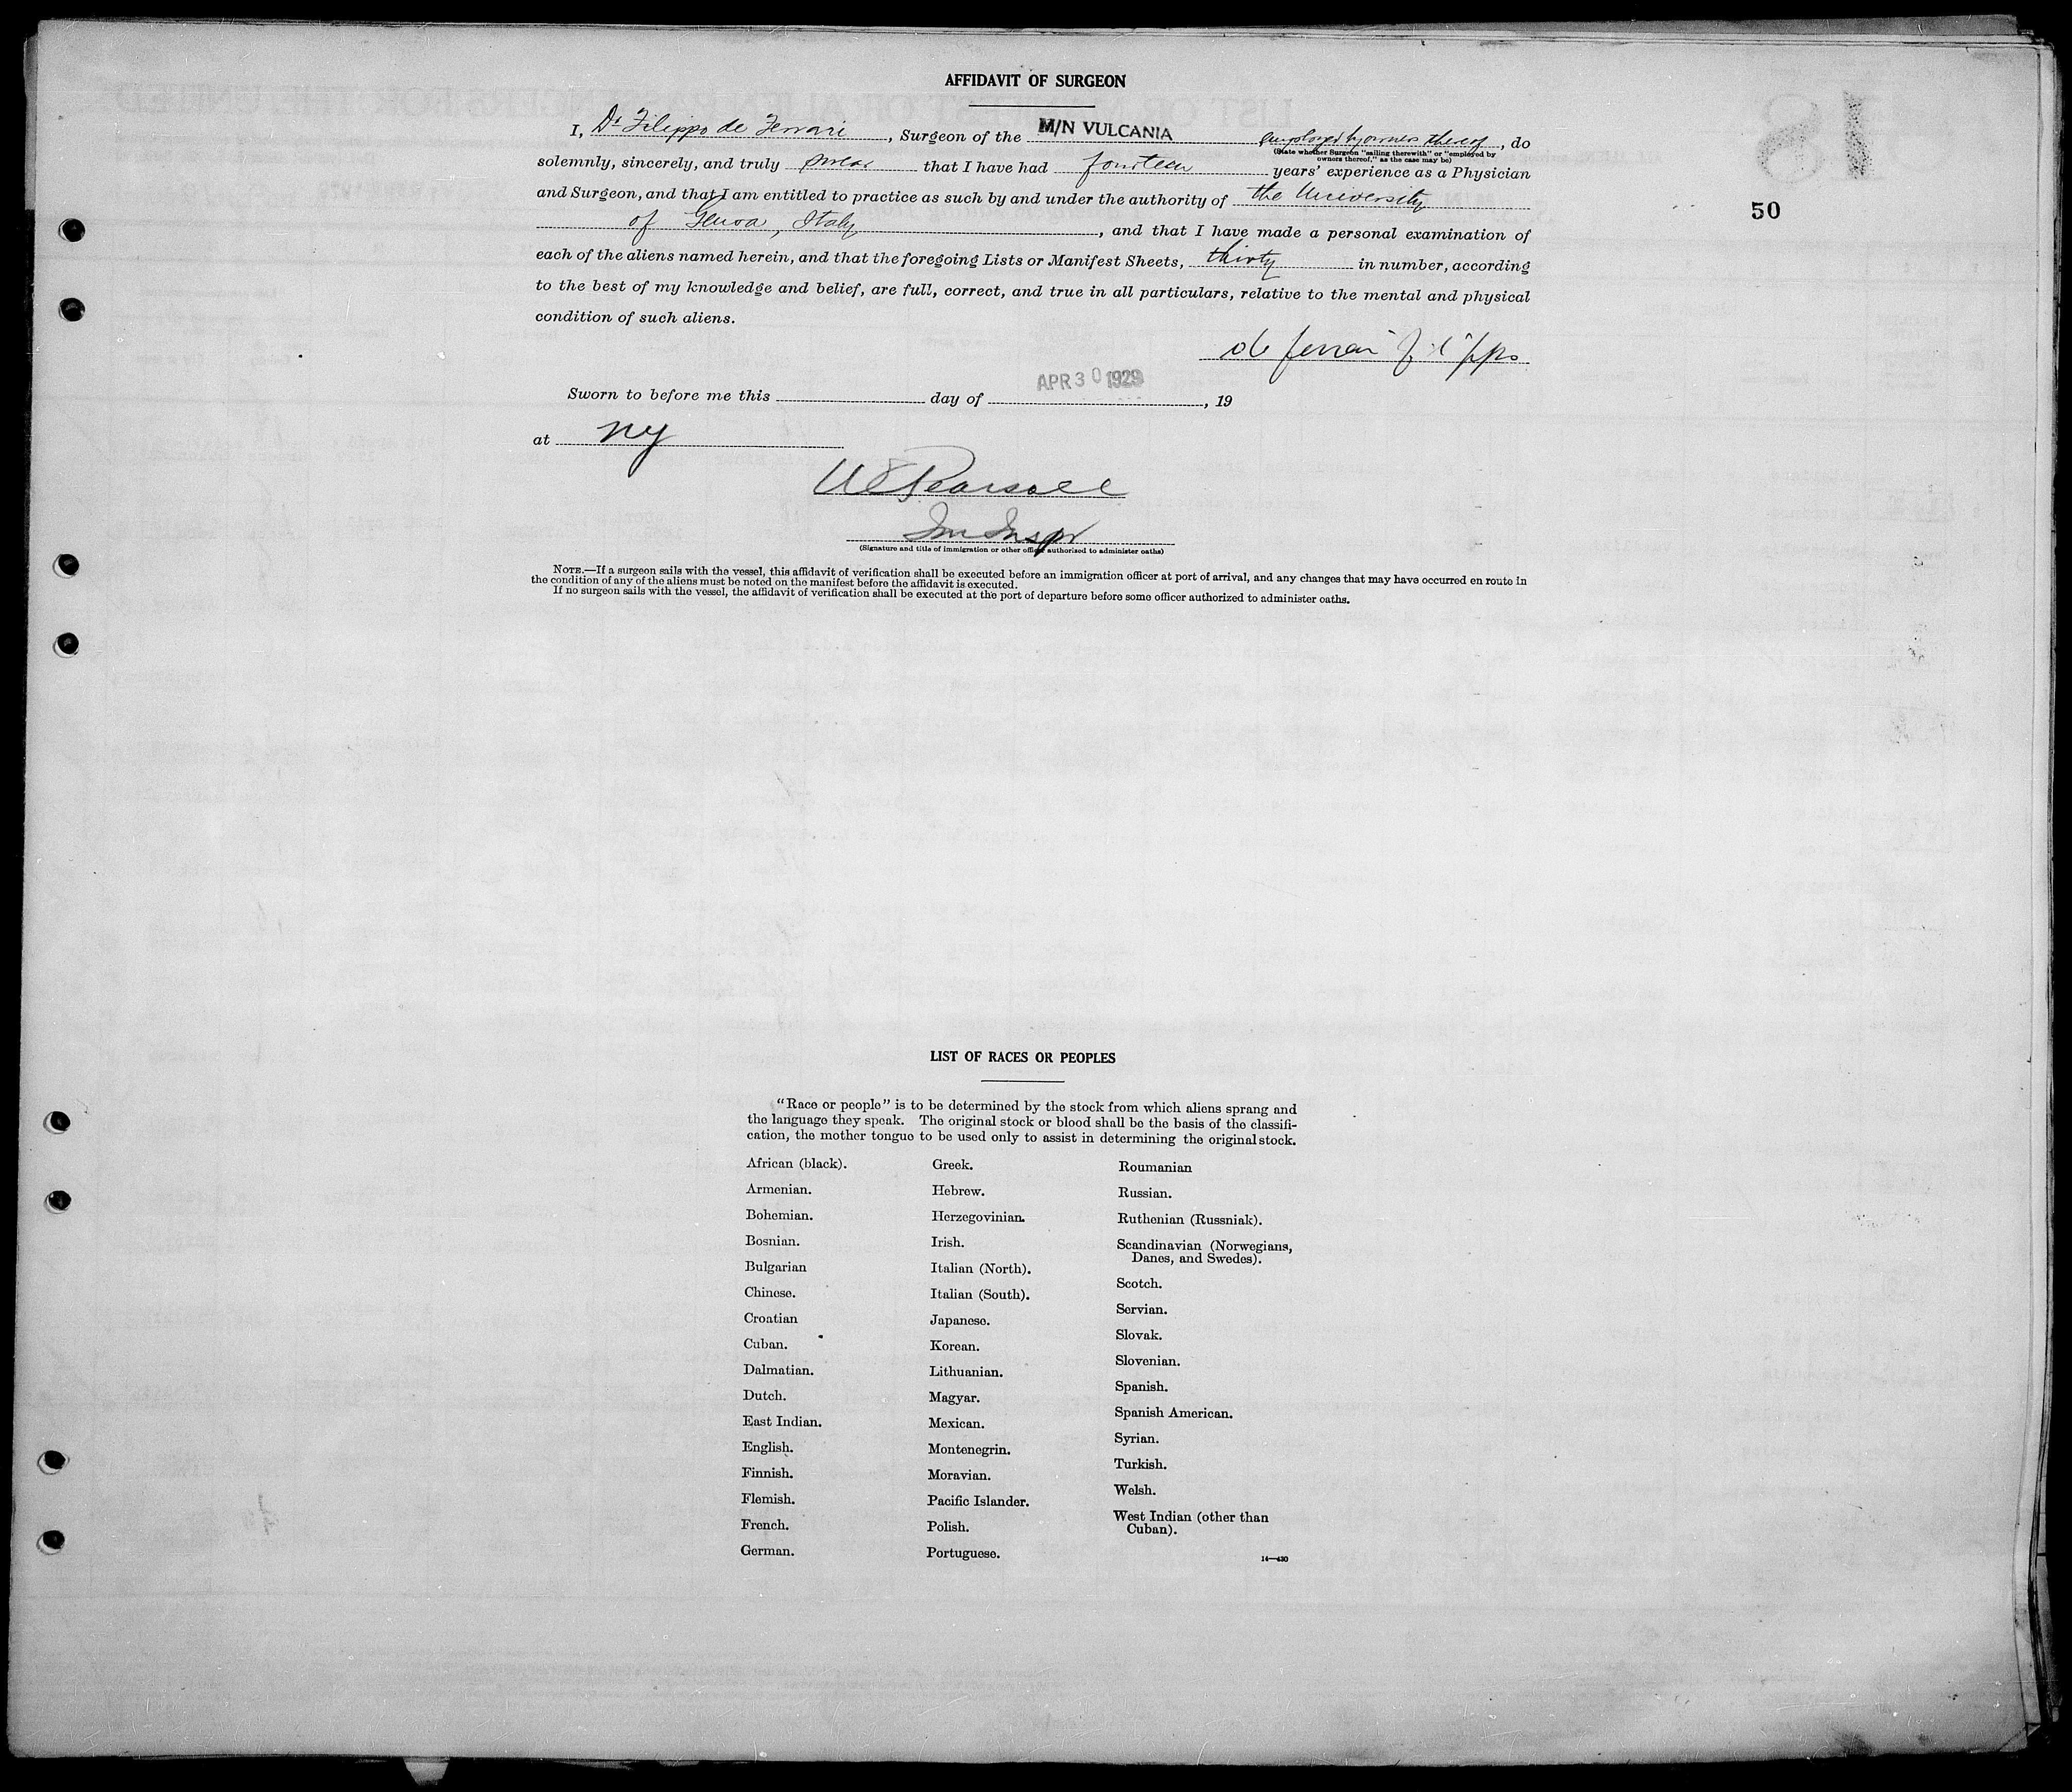 AFFIDAVIT OF SURGEON
I, Dr Filippo de Ferrari, Surgeon of the M/N VULCANIA employed by owners thereof, do
(State whether Surgeon "sailing therewith" or "employed by
owners thereof," as the case may be)
solemnly, sincerely, and truly swear that I have had fourteen years' experience as a Physician
and Surgeon, and that I am entitled to practice as such by and under the authority of the University
50
of Genoa, Italy, and that I have made a personal examination of
each of the aliens named herein, and that the foregoing Lists or Manifest Sheets, thirty in number, according
to the best of my knowledge and belief, are full, correct, and true in all particulars, relative to the mental and physical
condition of such aliens.
de Ferrari Filippo
Sworn to before me this day of APR 30 1929, 19
at NY
W E Pearsall
Im Inspr
(Signature and title of immigration or other officer authorized to administer oaths)
NOTE.—If a surgeon sails with the vessel, this affidavit of verification shall be executed before an immigration officer at port of arrival, and any changes that may have occurred en route in
the condition of any of the aliens must be noted on the manifest before the affidavit is executed.
If no surgeon sails with the vessel, the affidavit of verification shall be executed at the port of departure before some officer authorized to administer oaths.
LIST OF RACES OR PEOPLES
"Race or people" is to be determined by the stock from which aliens sprang and
the language they speak. The original stock or blood shall be the basis of the classifi-
cation, the mother tongue to be used only to assist in determining the original stock.
African (black).
Armenian.
Bohemian.
Bosnian.
Bulgarian
Chinese.
Croatian
Cuban.
Dalmatian.
Dutch.
East Indian.
English.
Finnish.
Flemish.
French.
German.
Greek.
Hebrew.
Herzegovinian.
Irish.
Italian (North).
Italian (South).
Japanese.
Korean.
Lithuanian.
Magyar.
Mexican.
Montenegrin.
Moravian.
Pacific Islander.
Polish.
Portuguese.
Roumanian
Russian.
Ruthenian (Russniak).
Scandinavian (Norwegians,
Danes, and Swedes).
Scotch.
Servian.
Slovak.
Slovenian.
Spanish.
Spanish American.
Syrian.
Turkish.
Welsh.
West Indian (other than
Cuban).
14—430